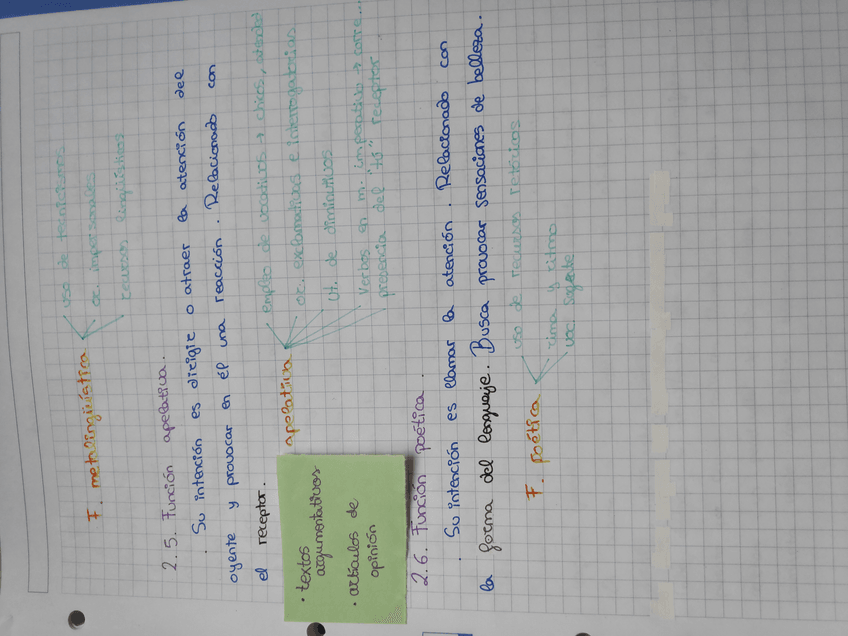 F. metalingüística
uso de tecnicismos
or. impersonales
recursos lingüísticos
2.5. Función apelativa.
· Su intención es dirigir o atraer la atención del
oyente y provocar en él una reacción. Relacionado con
el receptor.
apelativa
empleo de vocativos → chicos, atended!
or. exclamativas e interrogativas
Ut. de diminutivos
Verbos en m. imperativo → corre...
presencia del "tú" receptor
· textos
argumentativos
· artículos de
opinión
2.6. Función poética.
· Su intención es llamar la atención. Relacionado con
la forma del lenguaje. Busca provocar sensaciones de belleza.
F. poética
uso de recursos retóricos
rima y ritmo